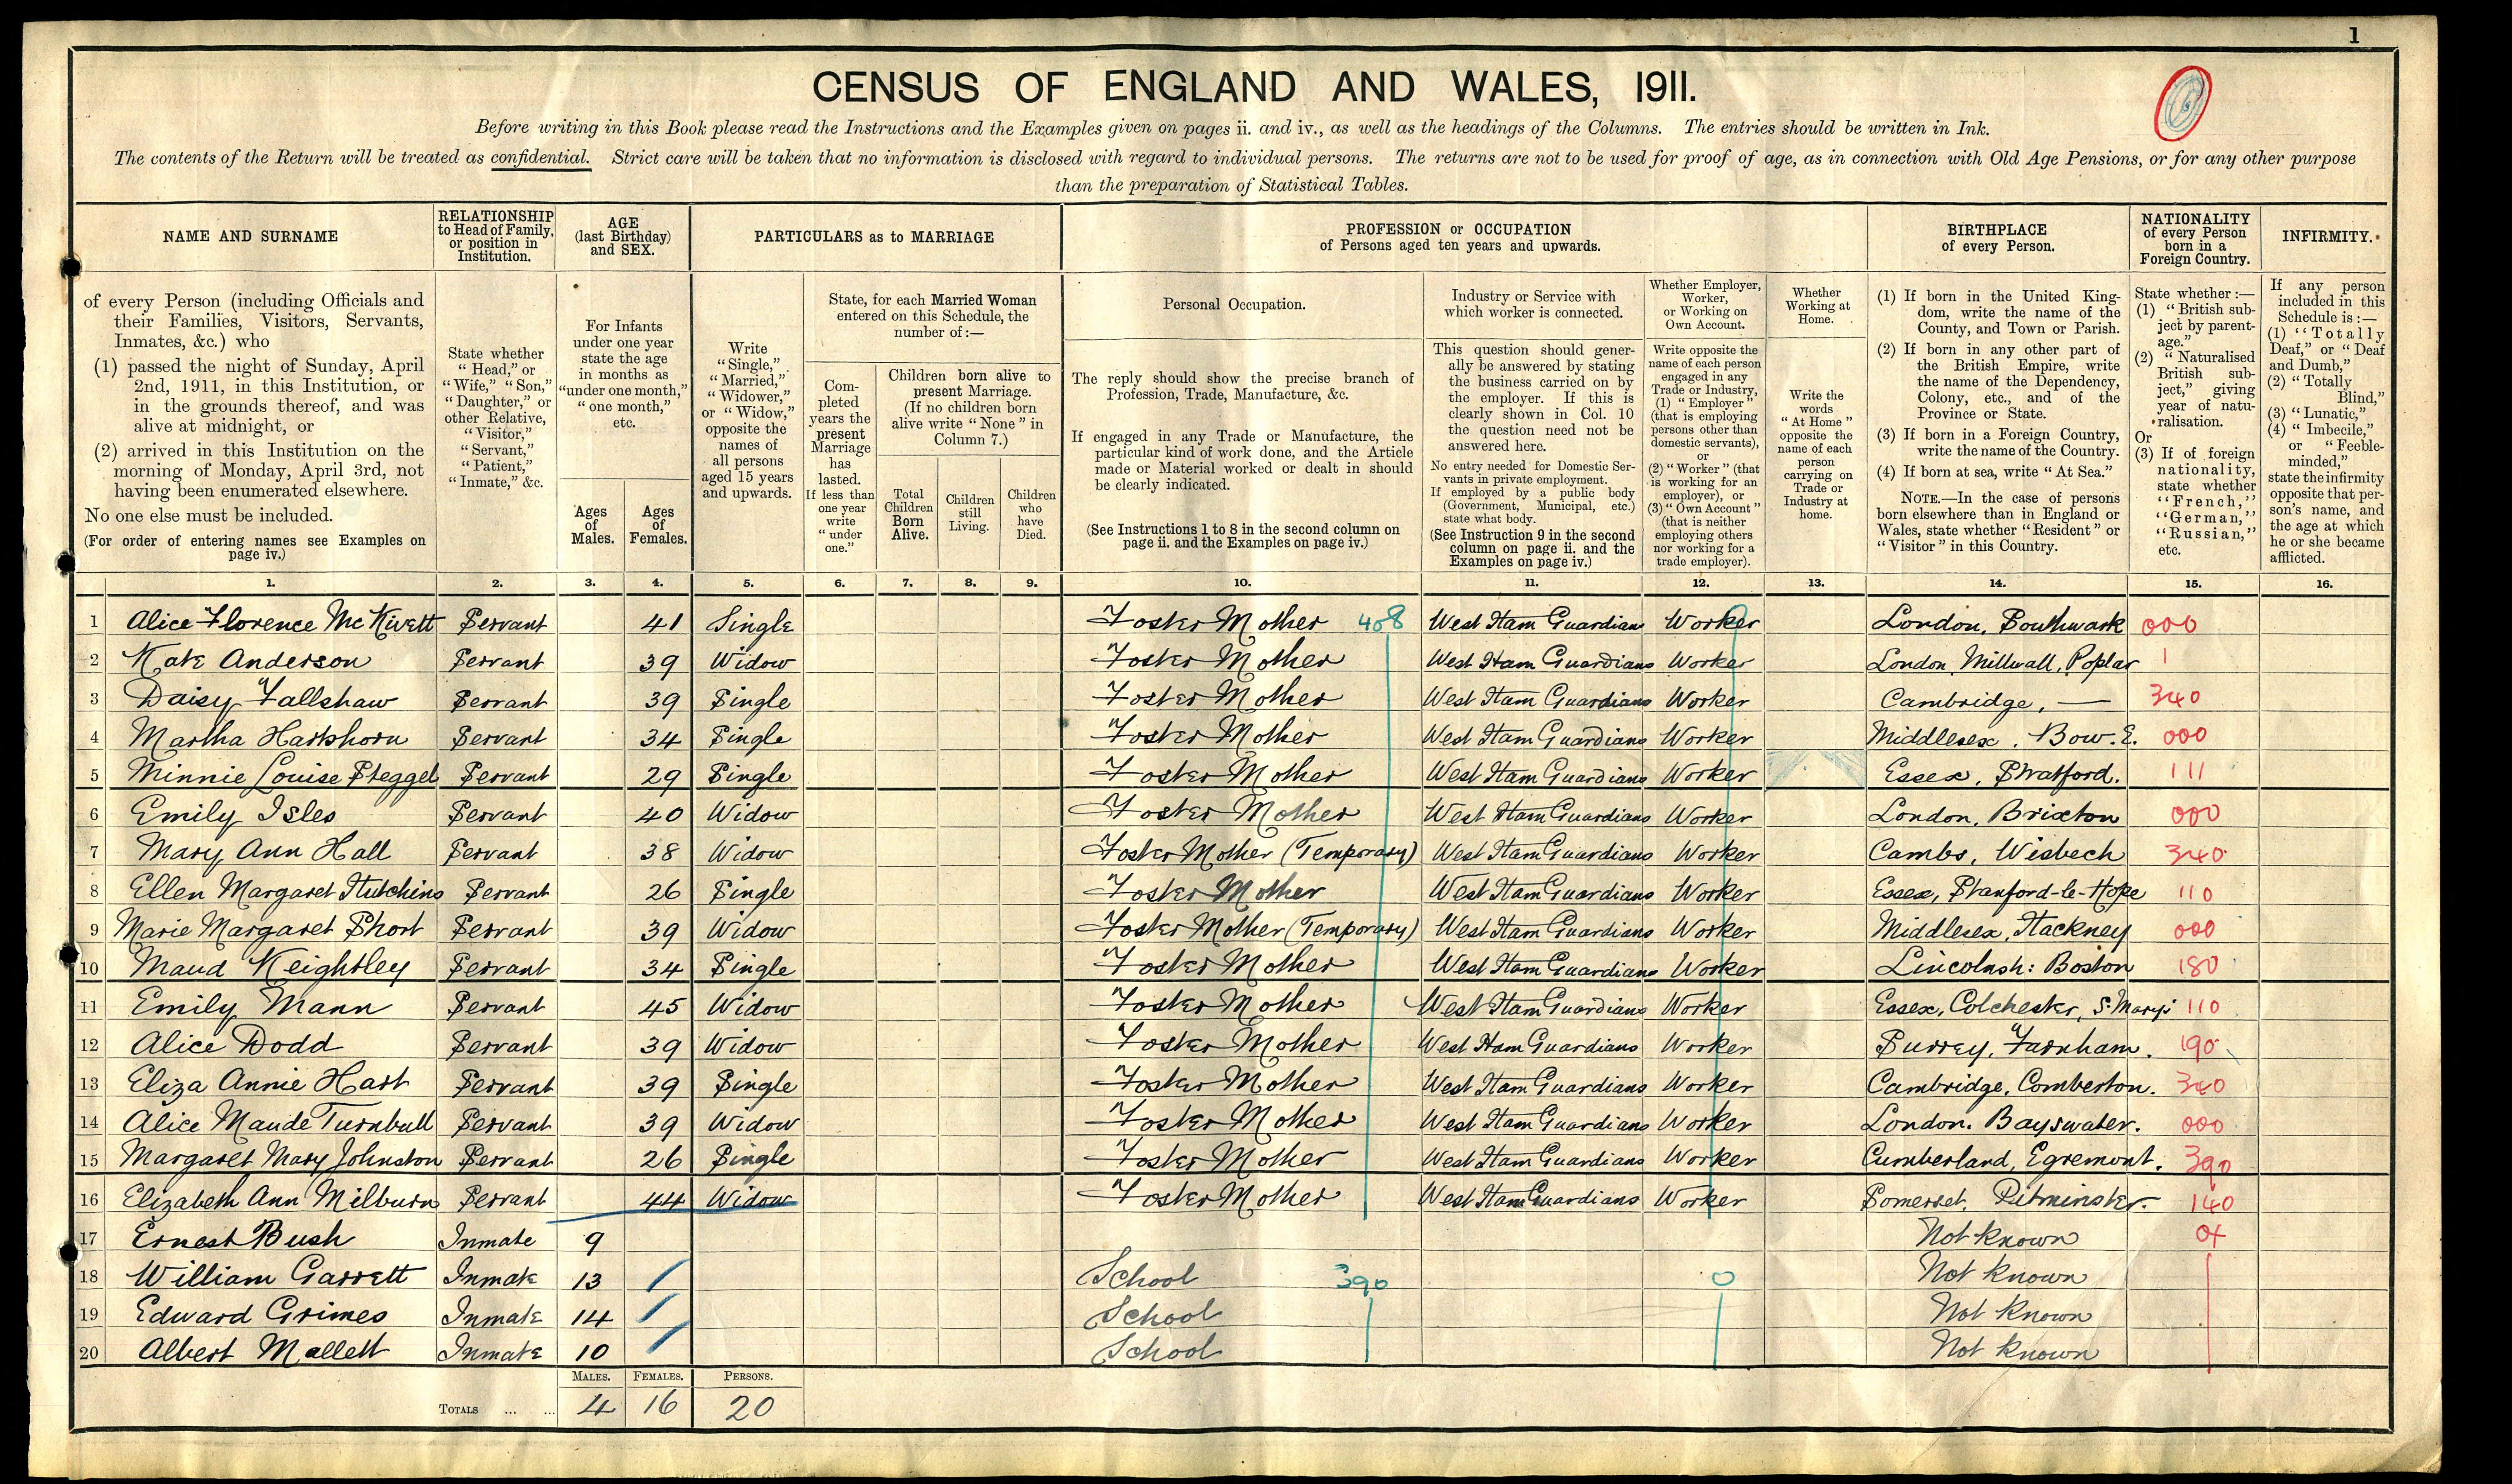 1
CENSUS OF ENGLAND AND WALES, 1911.
Before writing in this Book please read the Instructions and the Examples given on pages ii. and iv., as well as the headings of the Columns. The entries should be written in Ink.
The contents of the Return will be treated as confidential. Strict care will be taken that no information is disclosed with regard to individual persons. The returns are not to be used for proof of age, as in connection with Old Age Pensions, or for any other purpose
than the preparation of Statistical Tables.
NAME AND SURNAME
of every Person (including Officials and
their Families, Visitors, Servants,
Inmates, &c.) who
(1) passed the night of Sunday, April
2nd, 1911, in this Institution, or
in the grounds thereof, and was
alive at midnight, or
(2) arrived in this Institution on the
morning of Monday, April 3rd, not
having been enumerated elsewhere.
No one else must be included.
(For order of entering names see Examples on
page iv.)
1.
RELATIONSHIP
to Head of Family,
or position in
Institution.
State whether
"Head," or
"Wife," "Son,"
"Daughter," or
other Relative,
"Visitor,"
"Servant,"
"Patient,"
"Inmate," &c.
2.
AGE
(last Birthday)
and SEX.
For Infants
under one year
state the age
in months as
"under one month,"
"one month,"
etc.
Ages
of
Males.
3.
Ages
of
Females.
4.
PARTICULARS as to MARRIAGE
Write
"Single,"
"Married,"
"Widower,"
or "Widow,"
opposite the
names of
all persons
aged 15 years
and upwards.
5.
State, for each Married Woman
entered on this Schedule, the
number of:—
Com-
pleted
years the
present
Marriage
has
lasted.
If less than
one year
write
"under
one."
6.
Children born alive to
present Marriage.
(If no children born
alive write "None" in
Column 7.)
Total
Children
Born
Alive.
7.
Children
still
Living.
8.
Children
who
have
Died.
9.
PROFESSION or OCCUPATION
of Persons aged ten years and upwards.
Personal Occupation.
The reply should show the precise branch of
Profession, Trade, Manufacture, &c.
If engaged in any Trade or Manufacture, the
particular kind of work done, and the Article
made or Material worked or dealt in should
be clearly indicated.
(See Instructions 1 to 8 in the second column on
page ii. and the Examples on page iv.)
10.
Industry or Service with
which worker is connected.
This question should gener-
ally be answered by stating
the business carried on by
the employer. If this is
clearly shown in Col. 10
the question need not be
answered here.
No entry needed for Domestic Ser-
vants in private employment.
If employed by a public body
(Government, Municipal, etc.)
state what body.
(See Instruction 9 in the second
column on page ii. and the
Examples on page iv.)
11.
Whether Employer,
Worker,
or Working on
Own Account.
Write opposite the
name of each person
engaged in any
Trade or Industry,
(1) "Employer"
(that is employing
persons other than
domestic servants),
or
(2) "Worker" (that
is working for an
employer), or
(3) "Own Account"
(that is neither
employing others
nor working for a
trade employer).
12.
Whether
Working at
Home.
Write the
words
"At Home"
opposite the
name of each
person
carrying on
Trade or
Industry at
home.
13.
BIRTHPLACE
of every Person.
(1) If born in the United King-
dom, write the name of the
County, and Town or Parish.
(2) If born in any other part of
the British Empire, write
the name of the Dependency,
Colony, etc., and of the
Province or State.
(3) If born in a Foreign Country,
write the name of the Country.
(4) If born at sea, write "At Sea."
NOTE.—In the case of persons
born elsewhere than in England or
Wales, state whether "Resident" or
"Visitor" in this Country.
14.
NATIONALITY
of every Person
born in a
Foreign Country.
State whether:—
(1) "British sub-
ject by parent-
age."
(2) "Naturalised
British sub-
ject," giving
year of natu-
ralisation.
Or
(3) If of foreign
nationality,
state whether
"French,"
"German,"
"Russian,"
etc.
15.
INFIRMITY.
If any person
included in this
Schedule is:—
(1) "Totally
Deaf," or "Deaf
and Dumb,"
(2) "Totally
Blind,"
(3) "Lunatic,"
(4) "Imbecile,"
or "Feeble-
minded,"
state the infirmity
opposite that per-
son's name, and
the age at which
he or she became
afflicted.
16.
1 Alice Florence McKivett Servant 41 Single Foster Mother 408 West Ham Guardians Worker 0 London, Southwark 000
2 Kate Anderson Servant 39 Widow Foster Mother West Ham Guardians Worker London Millwall, Poplar
3 Daisy Fallshaw Servant 39 Single Foster Mother West Ham Guardians Worker Cambridge, — 340
4 Martha Hartshorn Servant 34 Single Foster Mother West Ham Guardians Worker Middlesex, Bow. E. 000
5 Minnie Louise Steggel Servant 29 Single Foster Mother West Ham Guardians Worker Essex, Stratford. 111
6 Emily Isles Servant 40 Widow Foster Mother West Ham Guardians Worker London, Brixton 000
7 Mary Ann Hall Servant 38 Widow Foster Mother (Temporary) West Ham Guardians Worker Cambs, Wisbech 340
8 Ellen Margaret Hutchins Servant 26 Single Foster Mother West Ham Guardians Worker Essex, Stanford-le-Hope 110
9 Marie Margaret Short Servant 39 Widow Foster Mother (Temporary) West Ham Guardians Worker Middlesex, Hackney 000
10 Maud Keightley Servant 34 Single Foster Mother West Ham Guardians Worker Lincolnsh: Boston 180
11 Emily Mann Servant 45 Widow Foster Mother West Ham Guardians Worker Essex, Colchester, St. Mary's 110
12 Alice Dodd Servant 39 Widow Foster Mother West Ham Guardians Worker Surrey, Farnham. 190
13 Eliza Annie Hart Servant 39 Single Foster Mother West Ham Guardians Worker Cambridge, Comberton. 340
14 Alice Maude Turnbull Servant 39 Widow Foster Mother West Ham Guardians Worker London. Bayswater. 000
15 Margaret Mary Johnston Servant 26 Single Foster Mother West Ham Guardians Worker Cumberland, Egremont. 390
16 Elizabeth Ann Milburn Servant 44 Widow Foster Mother West Ham Guardians Worker Somerset, Pitminster. 140
17 Ernest Bush Inmate 9 Not known
18 William Garrett Inmate 13 School 390 0 Not known
19 Edward Grimes Inmate 14 School Not known
20 Albert Mallett Inmate 10 School Not known
MALES. FEMALES. PERSONS.
TOTALS ... ... 4 16 20